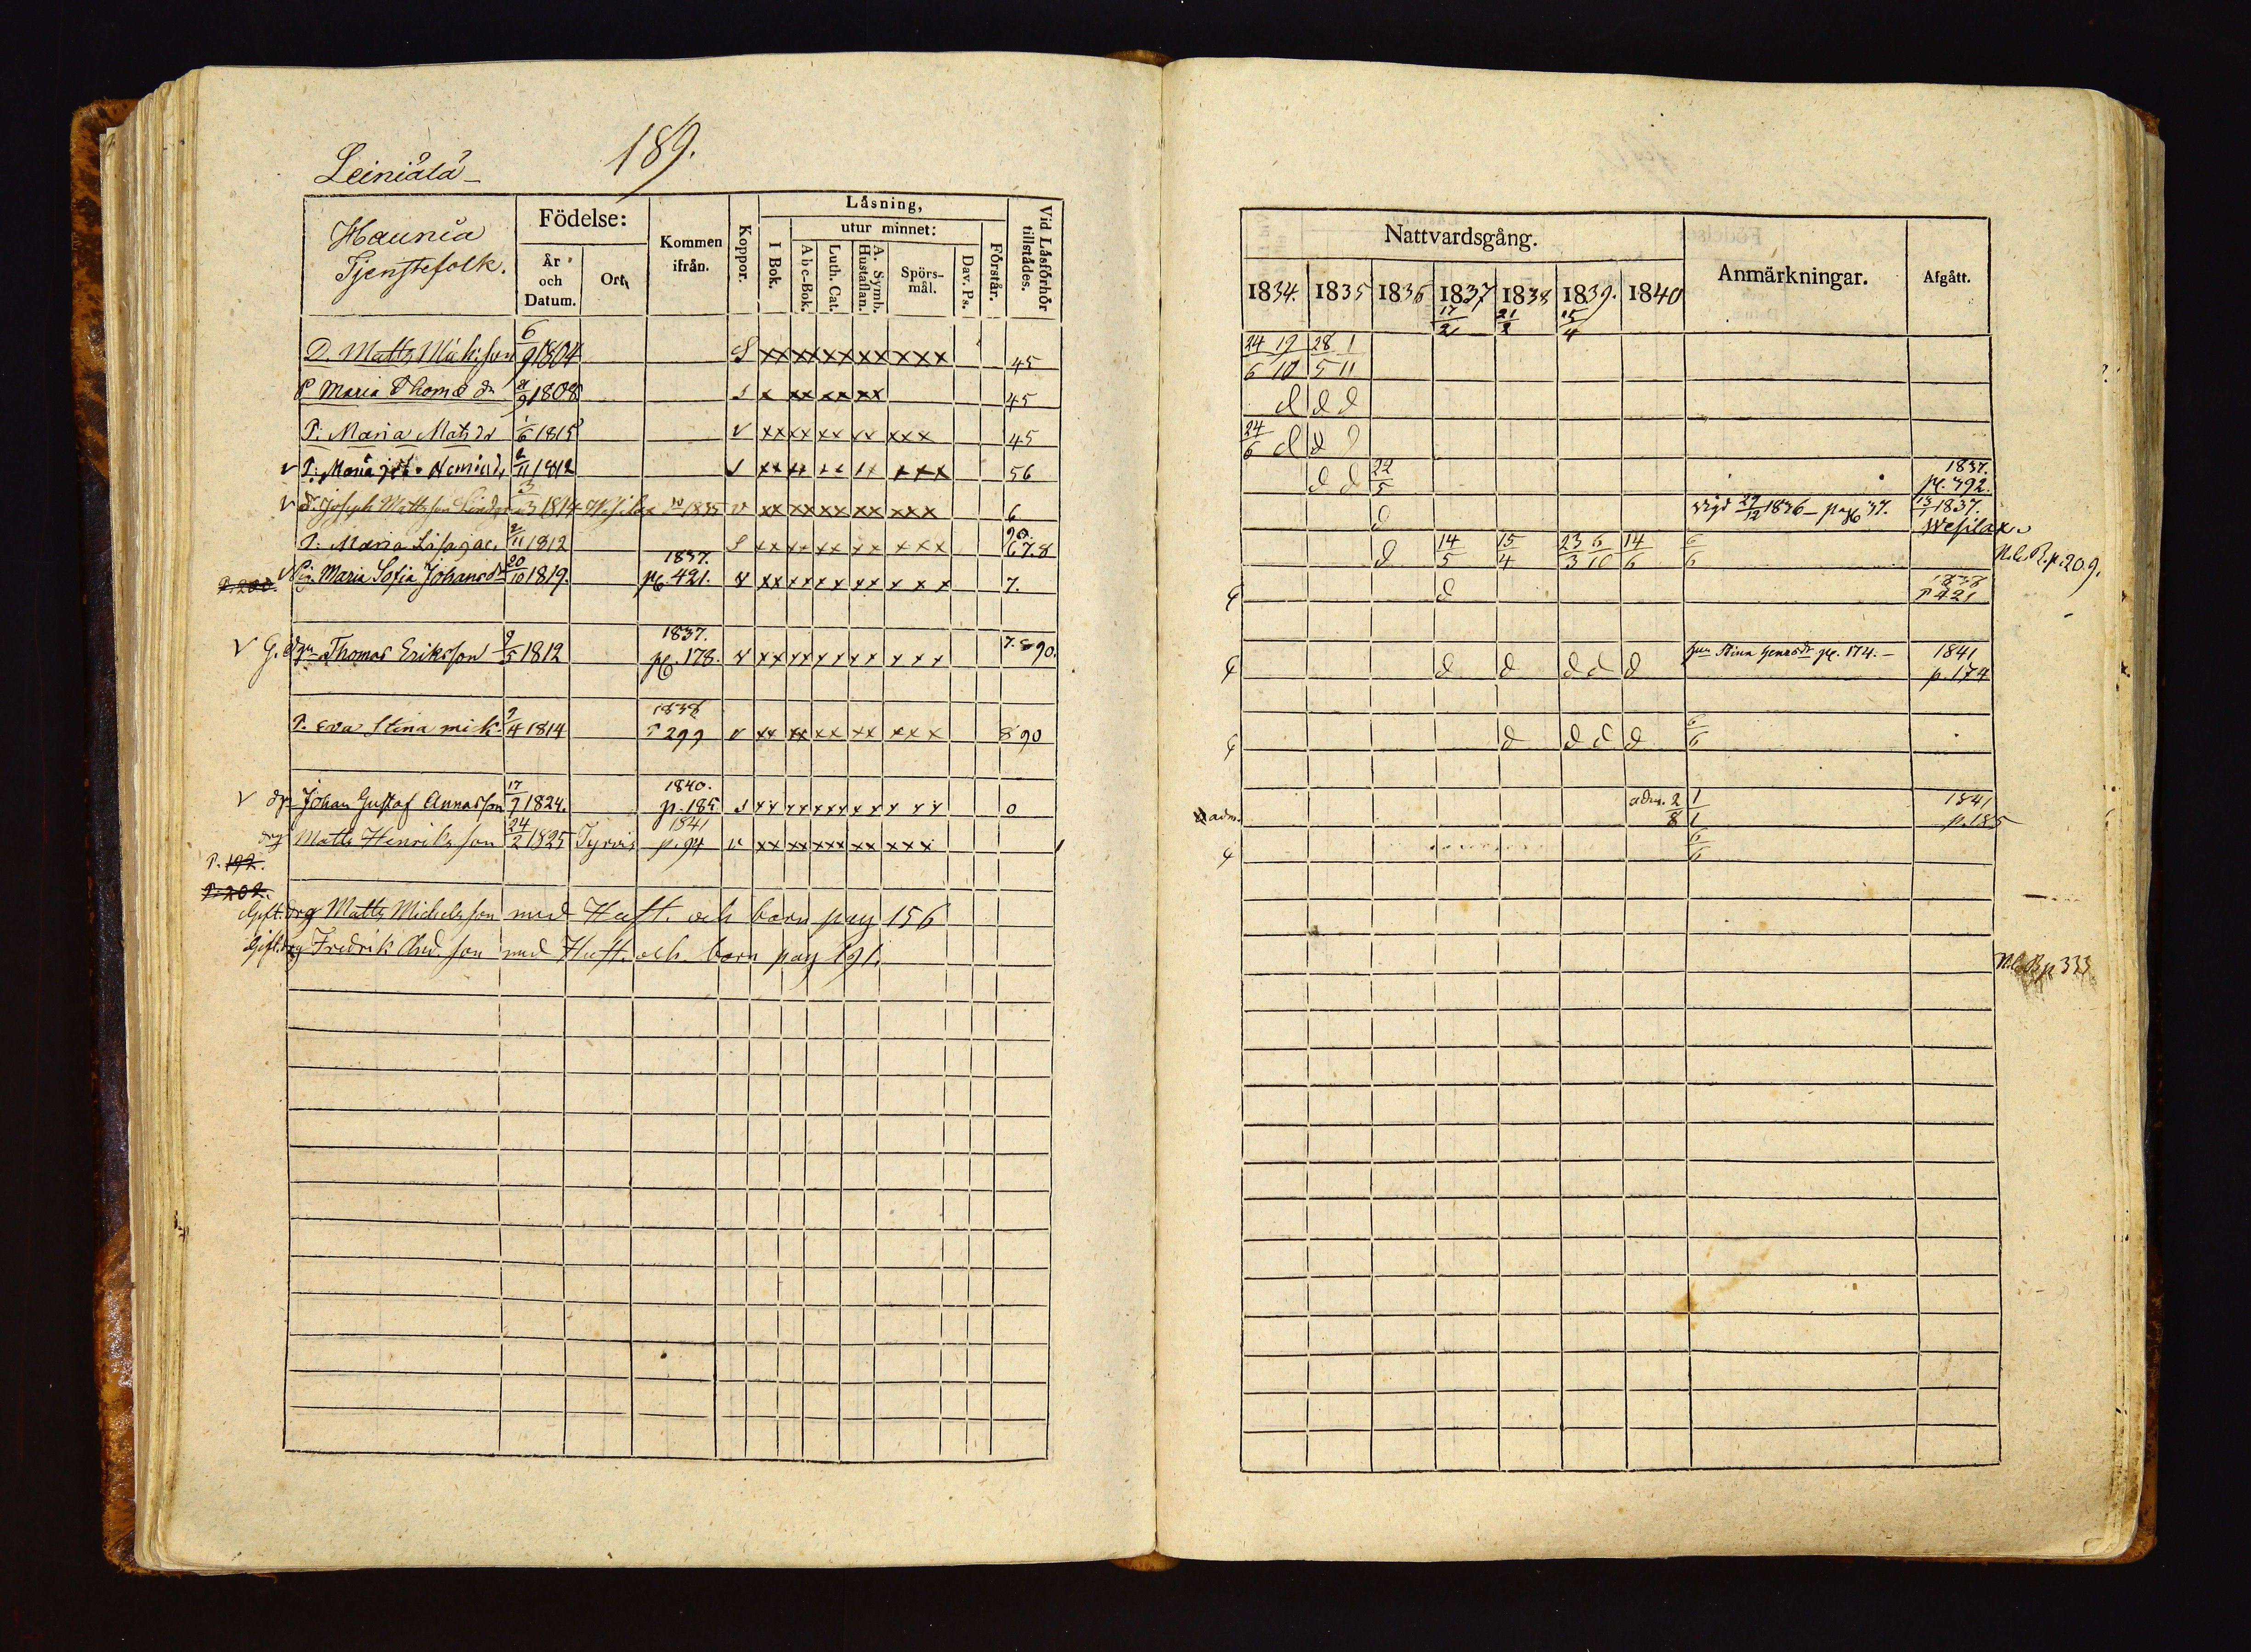 189.
Leiniälä
Haunia
Tjenstefolk.
Födelse:
År och Datum.
Ort.
Kommen ifrån.
Koppor.
Läsning,
I Bok.
utur minnet:
Abc-Bok.
Luth. Cat.
A. Symb. Hustaflan.
Spörs-mål.
Dav. Ps.
Förstår.
Vid Läsförhör tillstädes.
D. Matts 6/9 1804 S xx xx xx xx xxx 45
P Maria Thomæ dr 1808 x xx xx xx 45
P: Maria Mats dr 1/6 1815 v xx xx xx xxx 45
v P: Maria 2/11 1812 xx xxx 56
v dr. Joseph Mattsson 1814 1835 v xx xx xx xx xxx 6
P: Maria Lisa 2/11 1812 S xx xx xx xx xxx 678
Maria Sofia Johansdr 20/10 1819. 1837. pg 421. v xx xx xx xx xxx 7.
v G. Thomas Eriksson 9/5 1812 1837. pg. 178. v xx xx xx xx xxx 7. 90.
P. Eva Stina mik. 9/4 1814 1838 P 299 v xx xx xx xx xxx 8 90
v Johan Gustaf Annasson 17/9 1824. 1840. p. 185 xx xx xx xx xx 0
drg Matts Henriksson 24/2 1825 Tyrvis 1841 p. 94 v xx xx xx xx xxx
P. 192.
P. 202.
Gift. drg Matts Michelsson med Hust. och barn pag 156
Gift. drg Fredrik And.son med Hust. och barn pag 191.
Nattvardsgång.
Anmärkningar.
Afgått.
1834. 1835 1836 1837 1838 1839. 1840
17/21 21/2 15/4
24/6 19/10 28/5 1/11
d d d
24/6 d d
d d 22/5 1837. pg. 392.
d vigd 29/12 1836 pag 37. 1837. Wesilax
d 14/5 15/4 23/3 6/10 14/6 6/6 N.C.B. p. 209.
d 1838 P 421
d d d d d Stina pg. 174. 1841 p. 174
d d d d 6/6
adm. adm. 2/8 1/1 1841 p. 185
6/6
N.C.B p 333